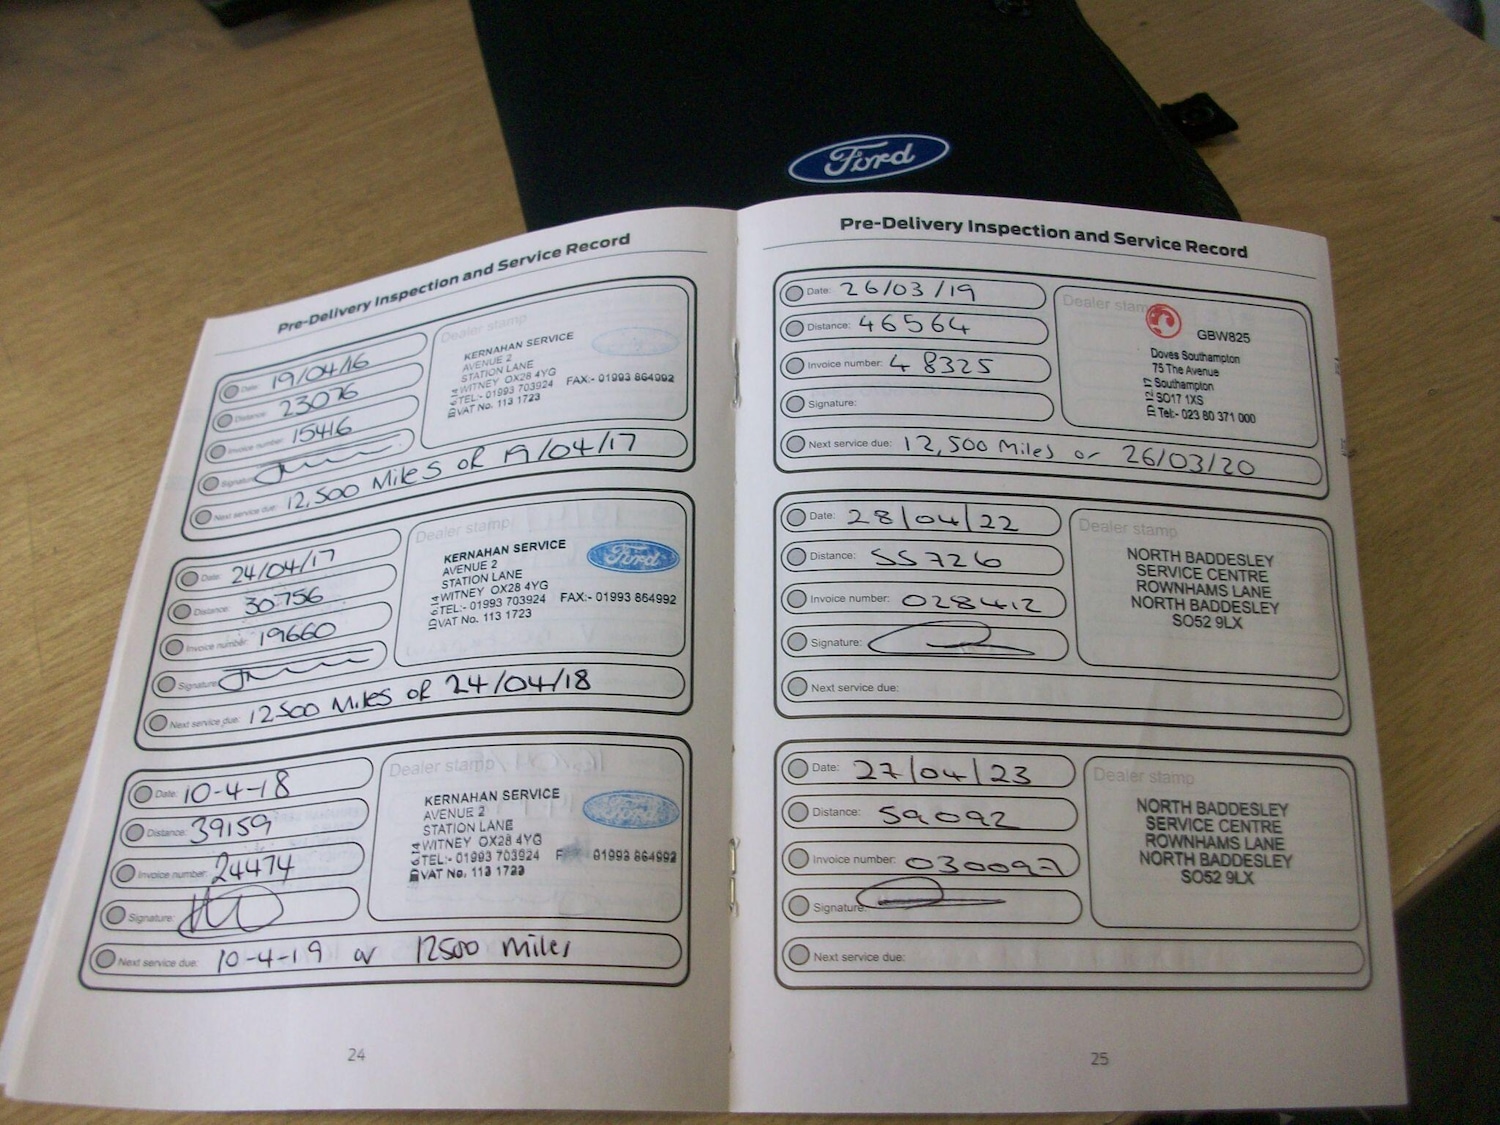 Ford
Pre-Delivery Inspection and Service Record
Date: 19/04/16
Distance: 23076
Invoice number: 15416
Signature:
Next service due: 12,500 Miles or 19/04/17
Dealer stamp
KERNAHAN SERVICE
AVENUE 2
STATION LANE
WITNEY OX28 4YG
TEL:- 01993 703924 FAX:- 01993 864992
VAT No. 113 1723
Date: 24/04/17
Distance: 30756
Invoice number: 19660
Signature:
Next service due: 12500 Miles or 24/04/18
Dealer stamp
KERNAHAN SERVICE
Ford
AVENUE 2
STATION LANE
WITNEY OX28 4YG
TEL:- 01993 703924 FAX:- 01993 864992
VAT No. 113 1723
Date: 10-4-18
Distance: 39159
Invoice number: 24474
Signature:
Next service due: 10-4-19 or 12500 miles
Dealer stamp
KERNAHAN SERVICE
AVENUE 2
STATION LANE
WITNEY OX28 4YG
TEL:- 01993 703924 01993 864992
VAT No. 113 1723
24
Pre-Delivery Inspection and Service Record
Date: 26/03/19
Distance: 46564
Invoice number: 48325
Signature:
Next service due: 12,500 Miles or 26/03/20
Dealer stamp
GBW825
Doves Southampton
75 The Avenue
Southampton
SO17 1XS
Tel:- 023 80 371 000
Date: 28/04/22
Distance: 55726
Invoice number: 028412
Signature:
Next service due:
Dealer stamp
NORTH BADDESLEY
SERVICE CENTRE
ROWNHAMS LANE
NORTH BADDESLEY
SO52 9LX
Date: 27/04/23
Distance: 59092
Invoice number: 030097
Signature:
Next service due:
Dealer stamp
NORTH BADDESLEY
SERVICE CENTRE
ROWNHAMS LANE
NORTH BADDESLEY
SO52 9LX
25